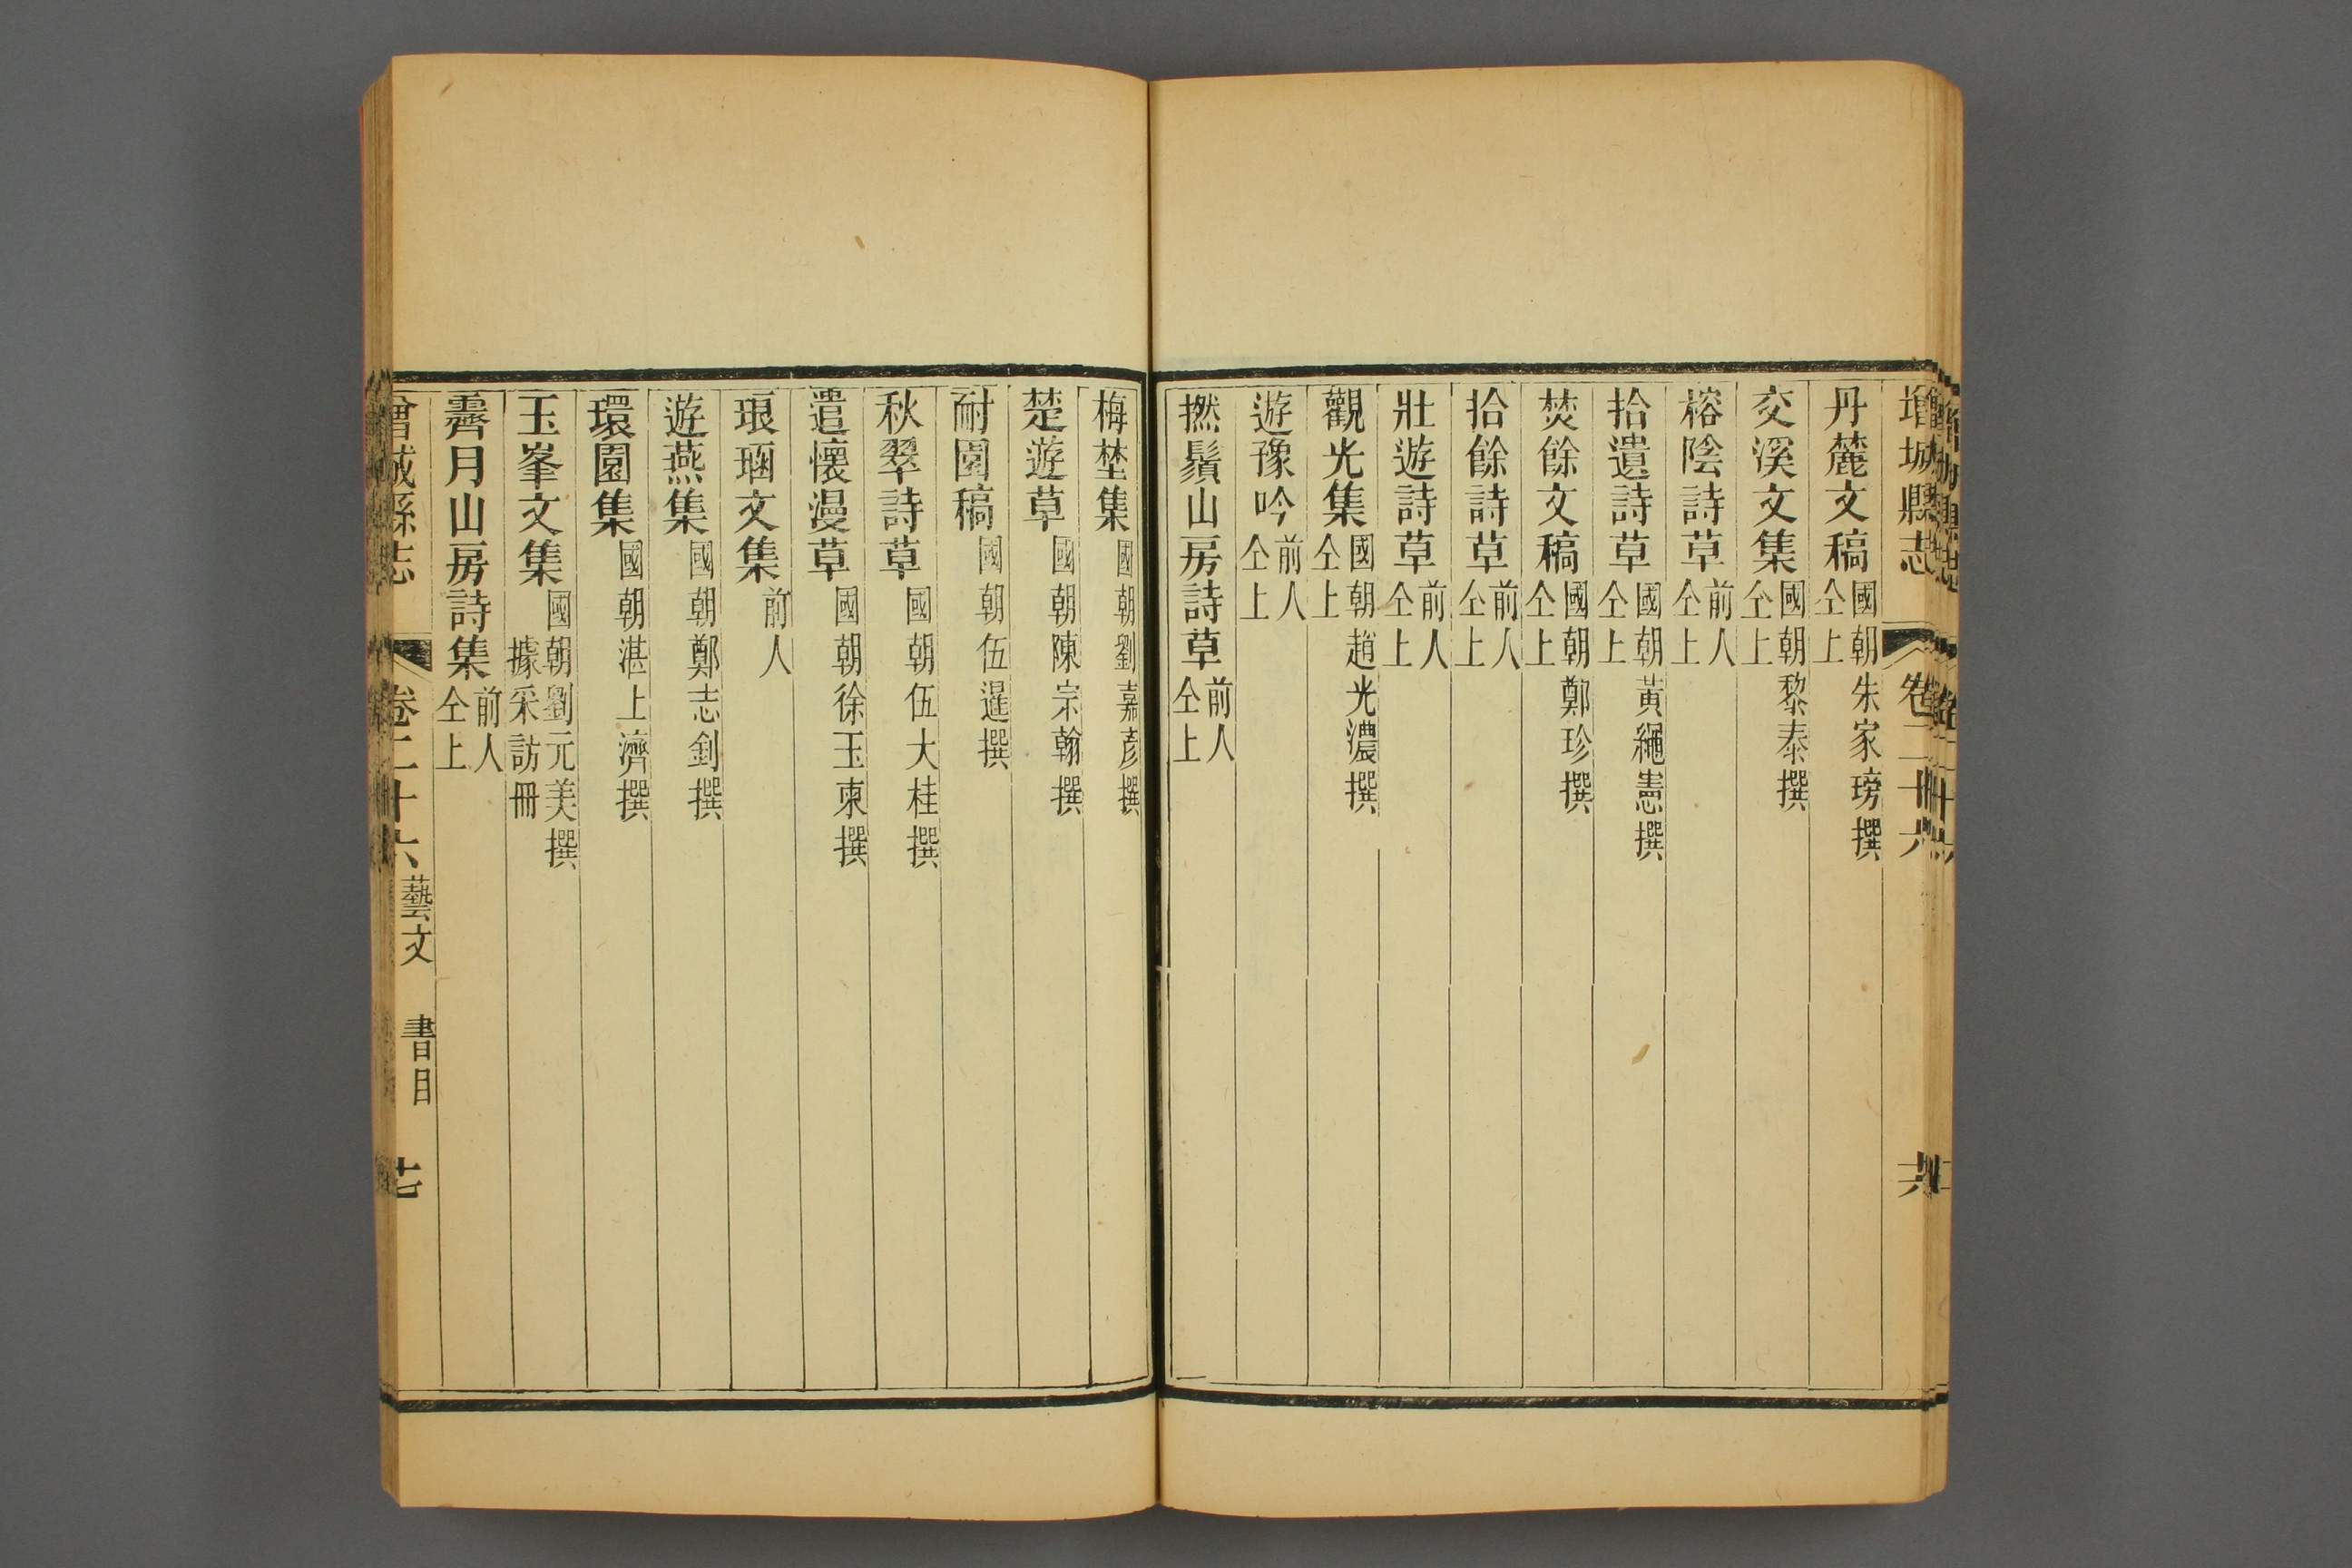 增城縣志 卷二十六
丹麓文稿 國朝朱家塝撰 仝上
交溪文集 國朝黎泰撰 仝上
榕陰詩草 前人 仝上
拾遺詩草 國朝黃繩憲撰 仝上
焚餘文稿 國朝鄭珍撰 仝上
拾餘詩草 前人 仝上
壯遊詩草 前人 仝上
觀光集 國朝趙光濃撰 仝上
遊豫吟 前人 仝上
撚鬚山房詩草 前人 仝上
梅埜集 國朝劉嘉彥撰
楚遊草 國朝陳宗翰撰
耐園稿 國朝伍暹撰
秋翠詩草 國朝伍大桂撰
遣懷漫草 國朝徐玉柬撰
琅琊文集 前人
遊燕集 國朝鄭志釗撰
環園集 國朝湛上濟撰
玉峯文集 國朝劉元美撰 據采訪冊
霽月山房詩集 前人 仝上
增城縣志 卷二十六 藝文 書目